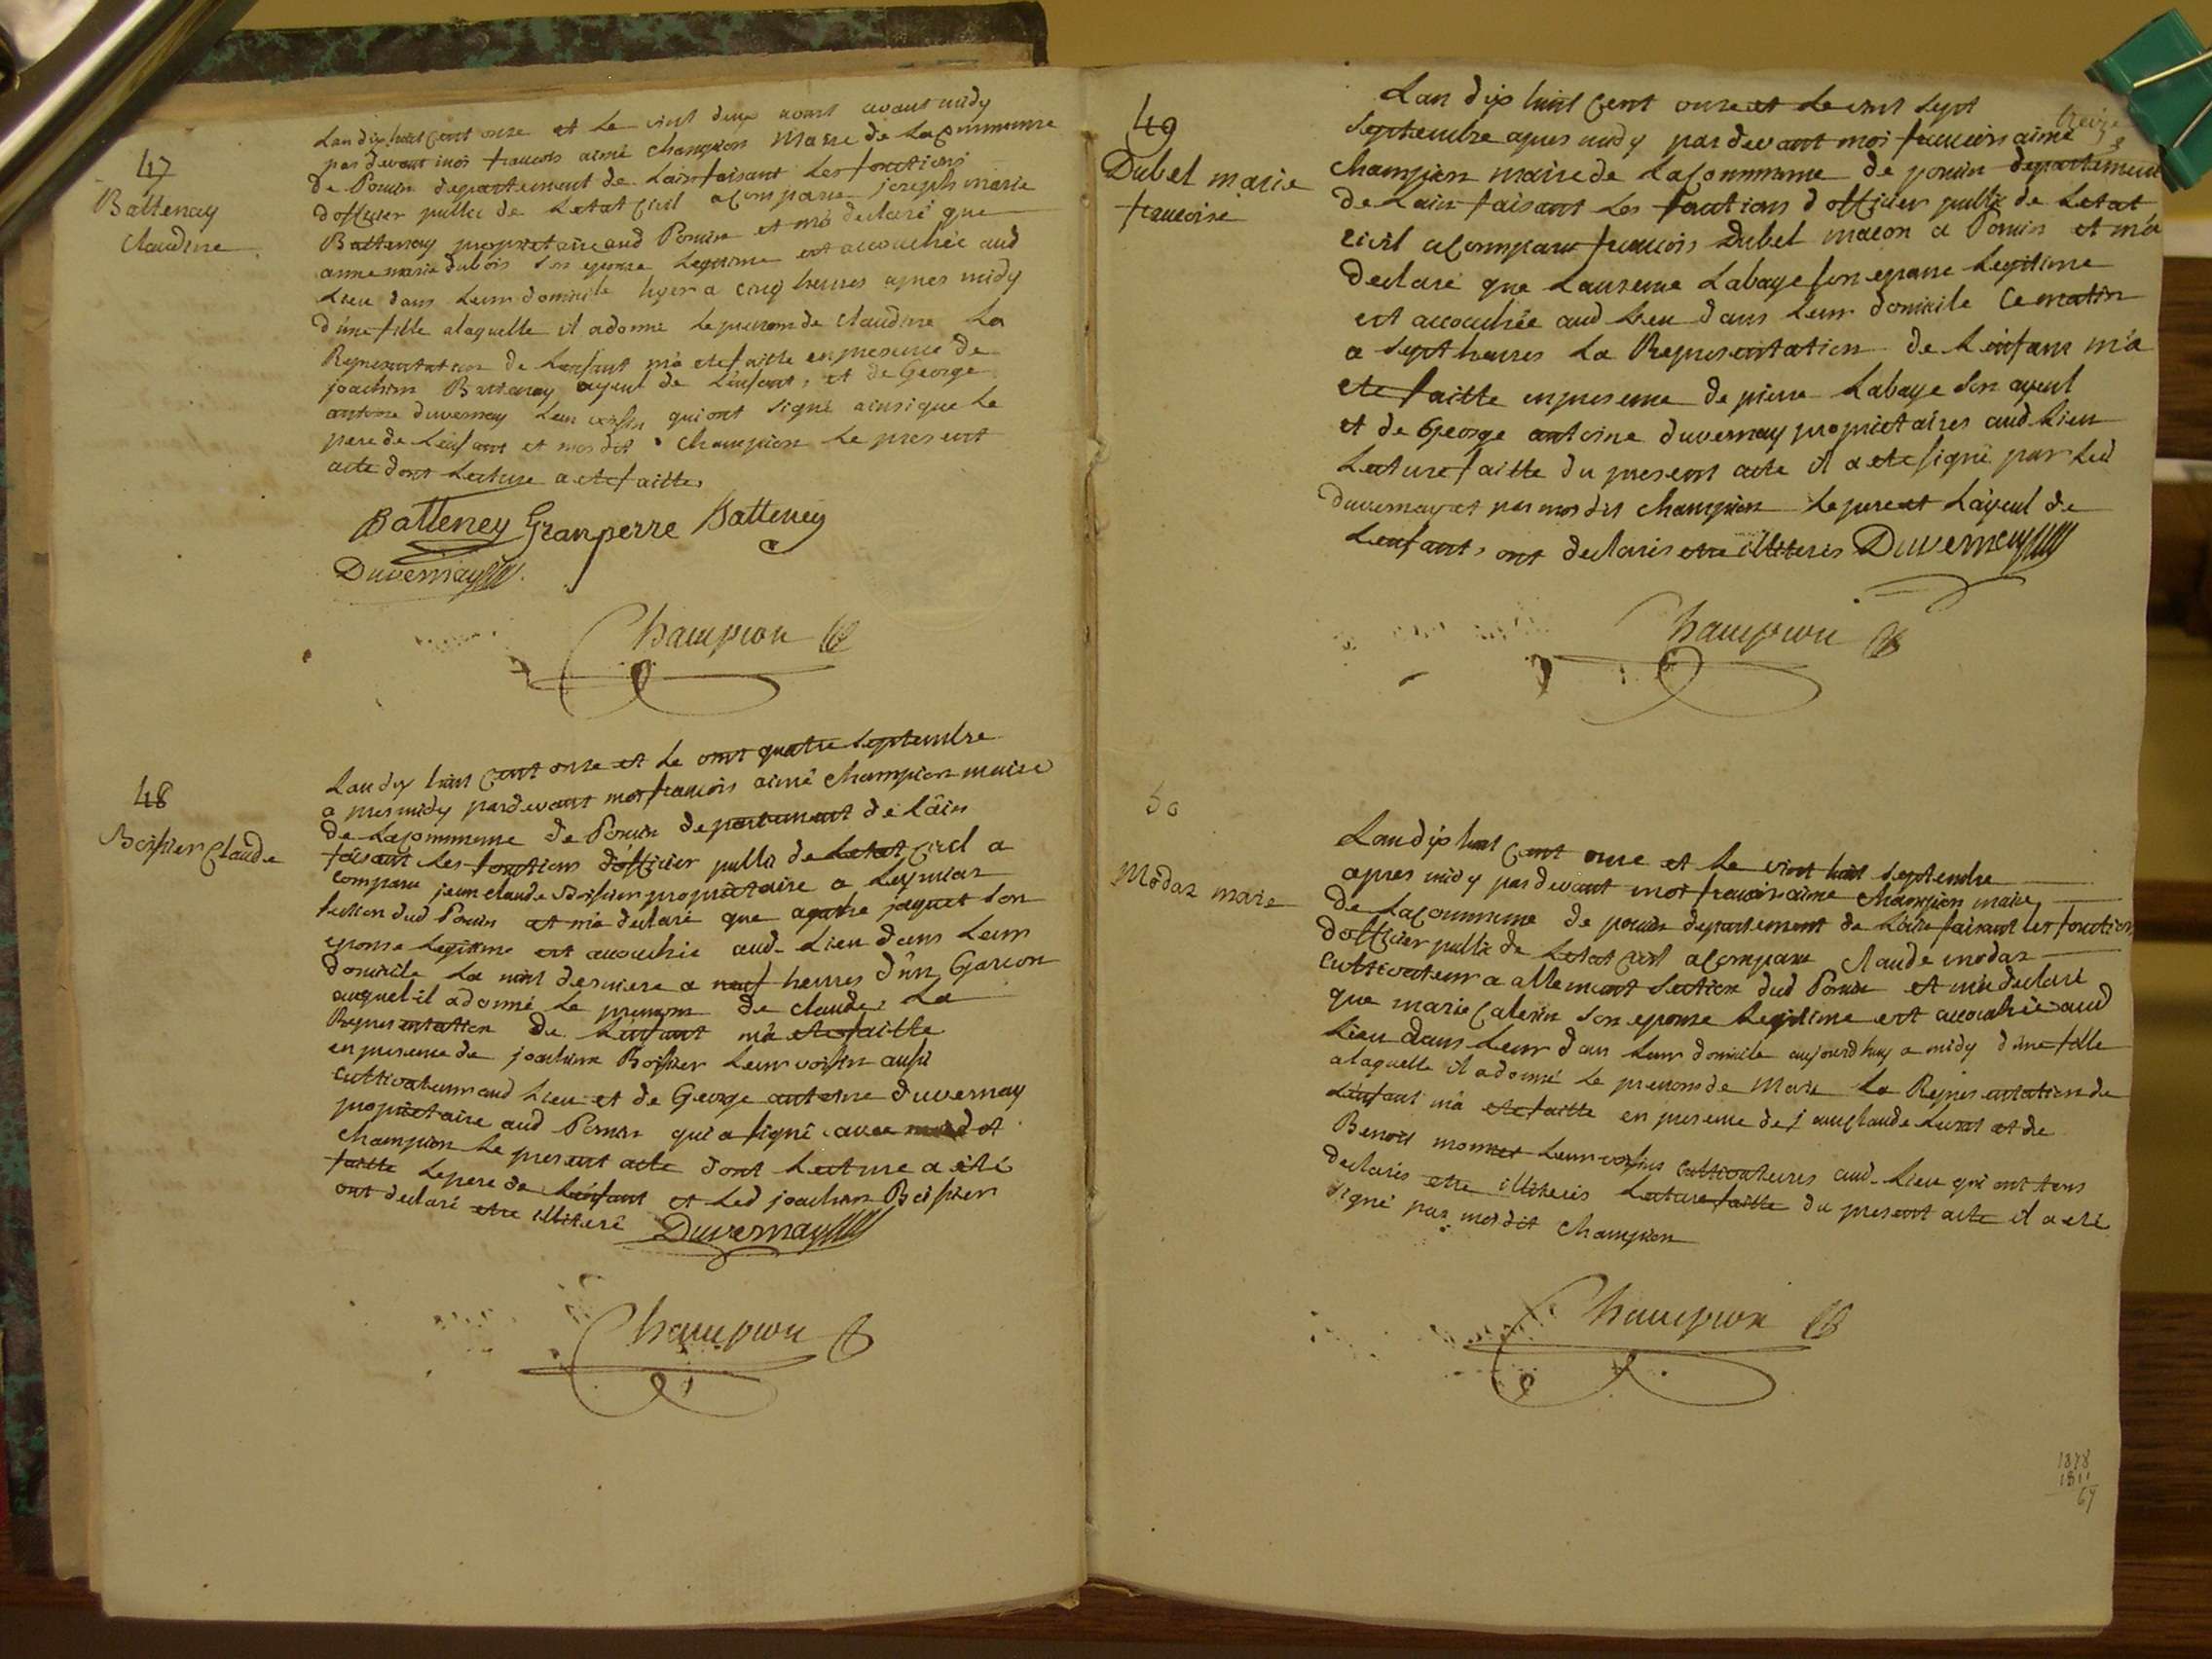 47
Battenay
Claudine
Lan dix huit cent onze et Le vint deux aoust avant midy
par devant moi francois aimé champion Maire de La Commune
de Poncin departement de Lain faisant Les fonctions
dofficier public de Letat civil a comparu joseph marie
Battenay proprietaire aud Poncin et mà declaré que
anne marie dubois son epouse Legitime est accouchée aud
Lieu dans Leur domicile hyer a cinq heures apres midy
d'une fille alaquelle il adonné Le prenom de Claudine La
Representation de Lenfant mà ete faitte en presence de
joachim Battenay ayeul de Lenfant, et de George
antoine duvernay Leur voisin qui ont signé ainsi que Le
pere de Lenfant et moi dit champion Le present
acte dont Lecture a ete faitte
Batteney Granperre Batteney
Duvernay
Champion
48
Boissier Claude
Lan dix huit cent onze et Le vint quatre septembre
apres midy pardevant moi francois aimé champion maire
de Lacommune de Poncin departement de Lain
faisant Les fonctions d'officier public de Letat civil a
comparu jean claude Boissier proprietaire a Leymiat
section dud Poncin et mà declaré que agathe jaquet son
epouse Legitime est accouchée aud. Lieu dans Leur
domicile La nuit derniere a neuf heures d'un Garcon
auquel il adonné Le prenom de claude, La
Representation de Lenfant mà ete faitte
en presence de joachim Boissier Leur voisin aussi
cultivateur aud Lieu et de George antoine duvernay
proprietaire aud Poncin qui a signé avec moi dit
champion Le present acte dont Lecture a été
faitte Le pere de Lenfant et Led joachim Boissier
ont declaré etre illiteré Duvernay
Champion
treize
49
Dubel marie
francoise
Lan dix huit cent onze et Le vint sept
septembre apres midy par devant moi francois aimé
champion maire de La Commune de poncin departement
de Lain faisant Les fonctions d officier public de Letat
civil a comparu francois Dubel macon a Poncin et mà
declaré que Laurence Labaye son epouse Legitime
est accouchée aud Lieu dans Leur domicile ce matin
a sept heures La Representation de Lenfant m'à
ete faitte en presence de pierre Labaye son ayeul
et de George antoine duvernay proprietaires aud. Lieu
Lecture faitte du present acte il a ete signé par Led
duvernay et par moi dit champion Le pere et Layeul de
Lenfant, ont declarés etre illiterés Duvernay
Champion
50
Modaz marie
Lan dix huit cent onze et Le vint huit septembre
apres midy par devant moi francois aimé champion maire
de La commune de poncin departement de Lain faisant les fonction
dofficier public de Letat civil a comparu Claude modaz
cultivateur a allement section dud Poncin et mà declaré
que marie Caterin son epouse Legitime est accouchée aud
Lieu dans Leur dans Leur domicile aujourdhuy a midy d'une fille
alaquelle il a donné Le prenom de Marie La Representation de
Lenfant mà ete faitte en presence de jean claude Lurat et de
Benoit monnet Leur voisins cultivateures aud. Lieu qui ont tous
declarés etre illiterés Lecture faitte du present acte il a eté
signé par moi dit champion
Champion
1878
1811
67